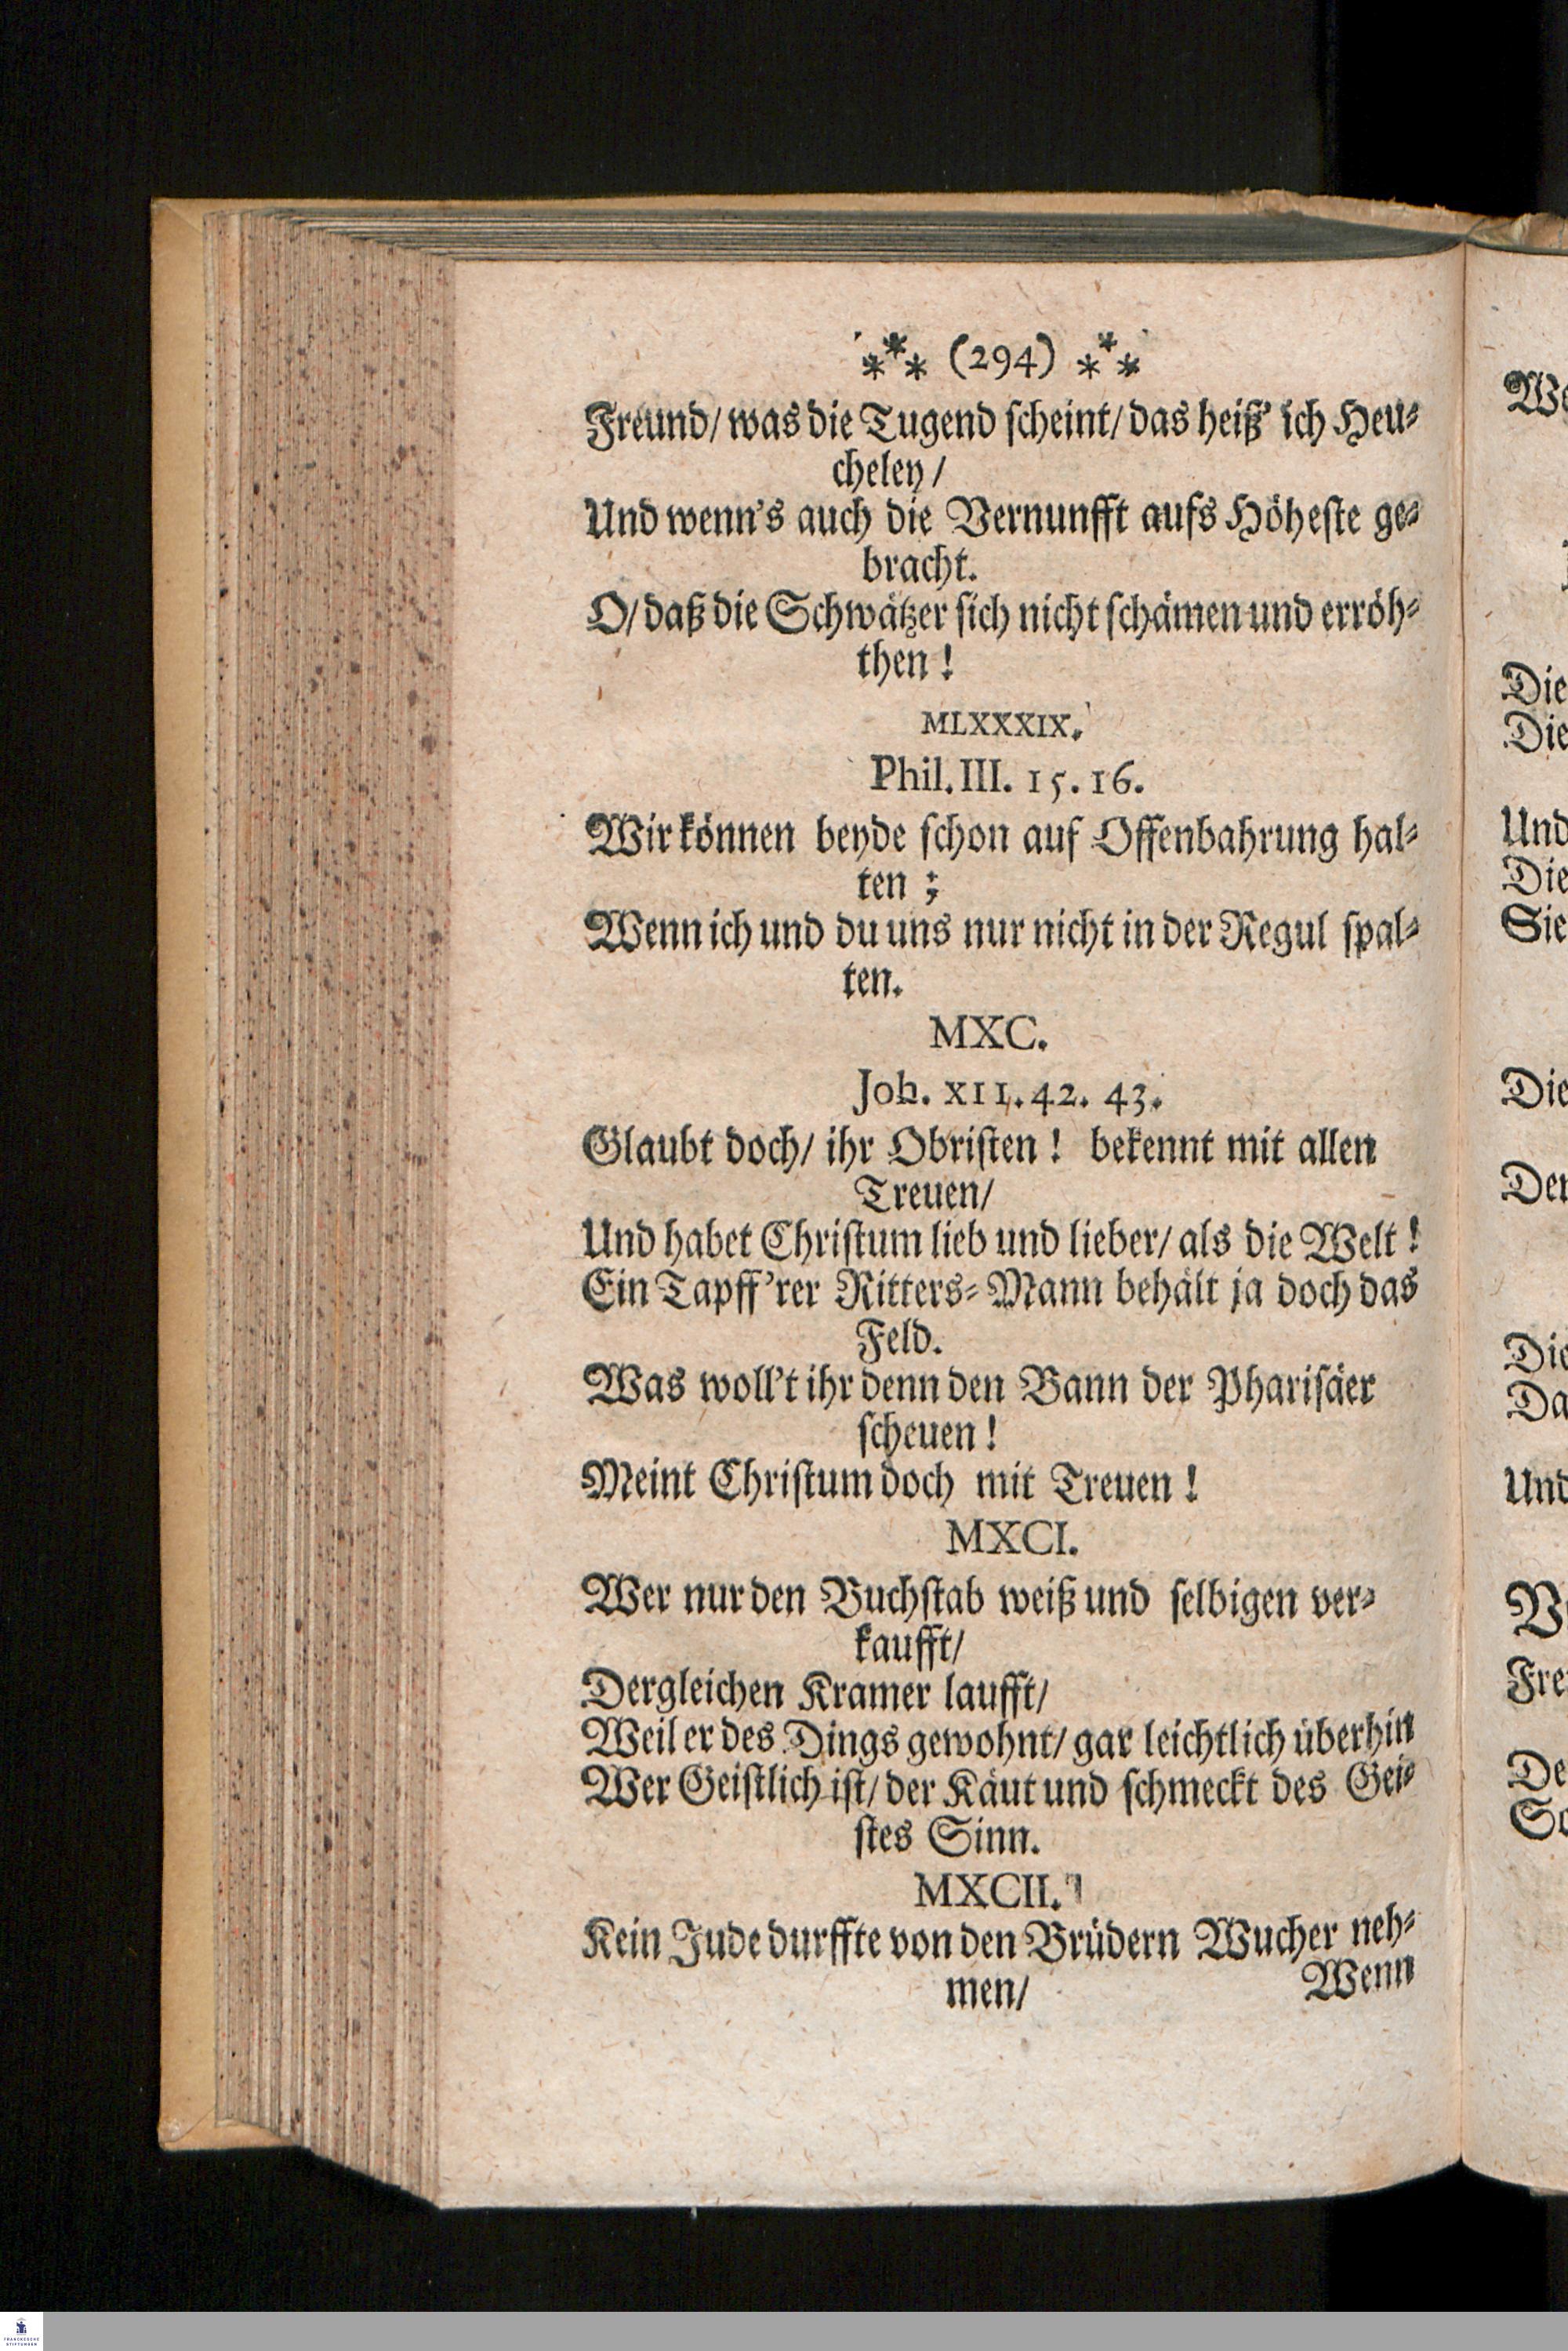 ⁂ (294) ⁂
Freund/ was die Tugend scheint/ das heiß' ich Heu-
cheley/
Und wenn's auch die Vernunfft aufs Höheste ge-
bracht.
O/ daß die Schwätzer sich nicht schämen und erröh-
then!
MLXXXIX.
Phil. III. 15. 16.
Wir können beyde schon auf Offenbahrung hal-
ten;
Wenn ich und du uns nur nicht in der Regul spal-
ten.
MXC.
Joh. XII. 42. 43.
Glaubt doch/ ihr Obristen! bekennt mit allen
Treuen/
Und habet Christum lieb und lieber/ als die Welt!
Ein Tapff'rer Ritters-Mann behält ja doch das
Feld.
Was woll't ihr denn den Bann der Pharisäer
scheuen!
Meint Christum doch mit Treuen!
MXCI.
Wer nur den Buchstab weiß und selbigen ver-
kaufft/
Dergleichen Kramer laufft/
Weil er des Dings gewohnt/ gar leichtlich überhin
Wer Geistlich ist/ der Käut und schmeckt des Gei-
stes Sinn.
MXCII.
Kein Jude durffte von den Brüdern Wucher neh-
men/
Wenn
Die
Die
Und
Die
Sie
Die
FRANCKESCHE
STIFTUNGEN